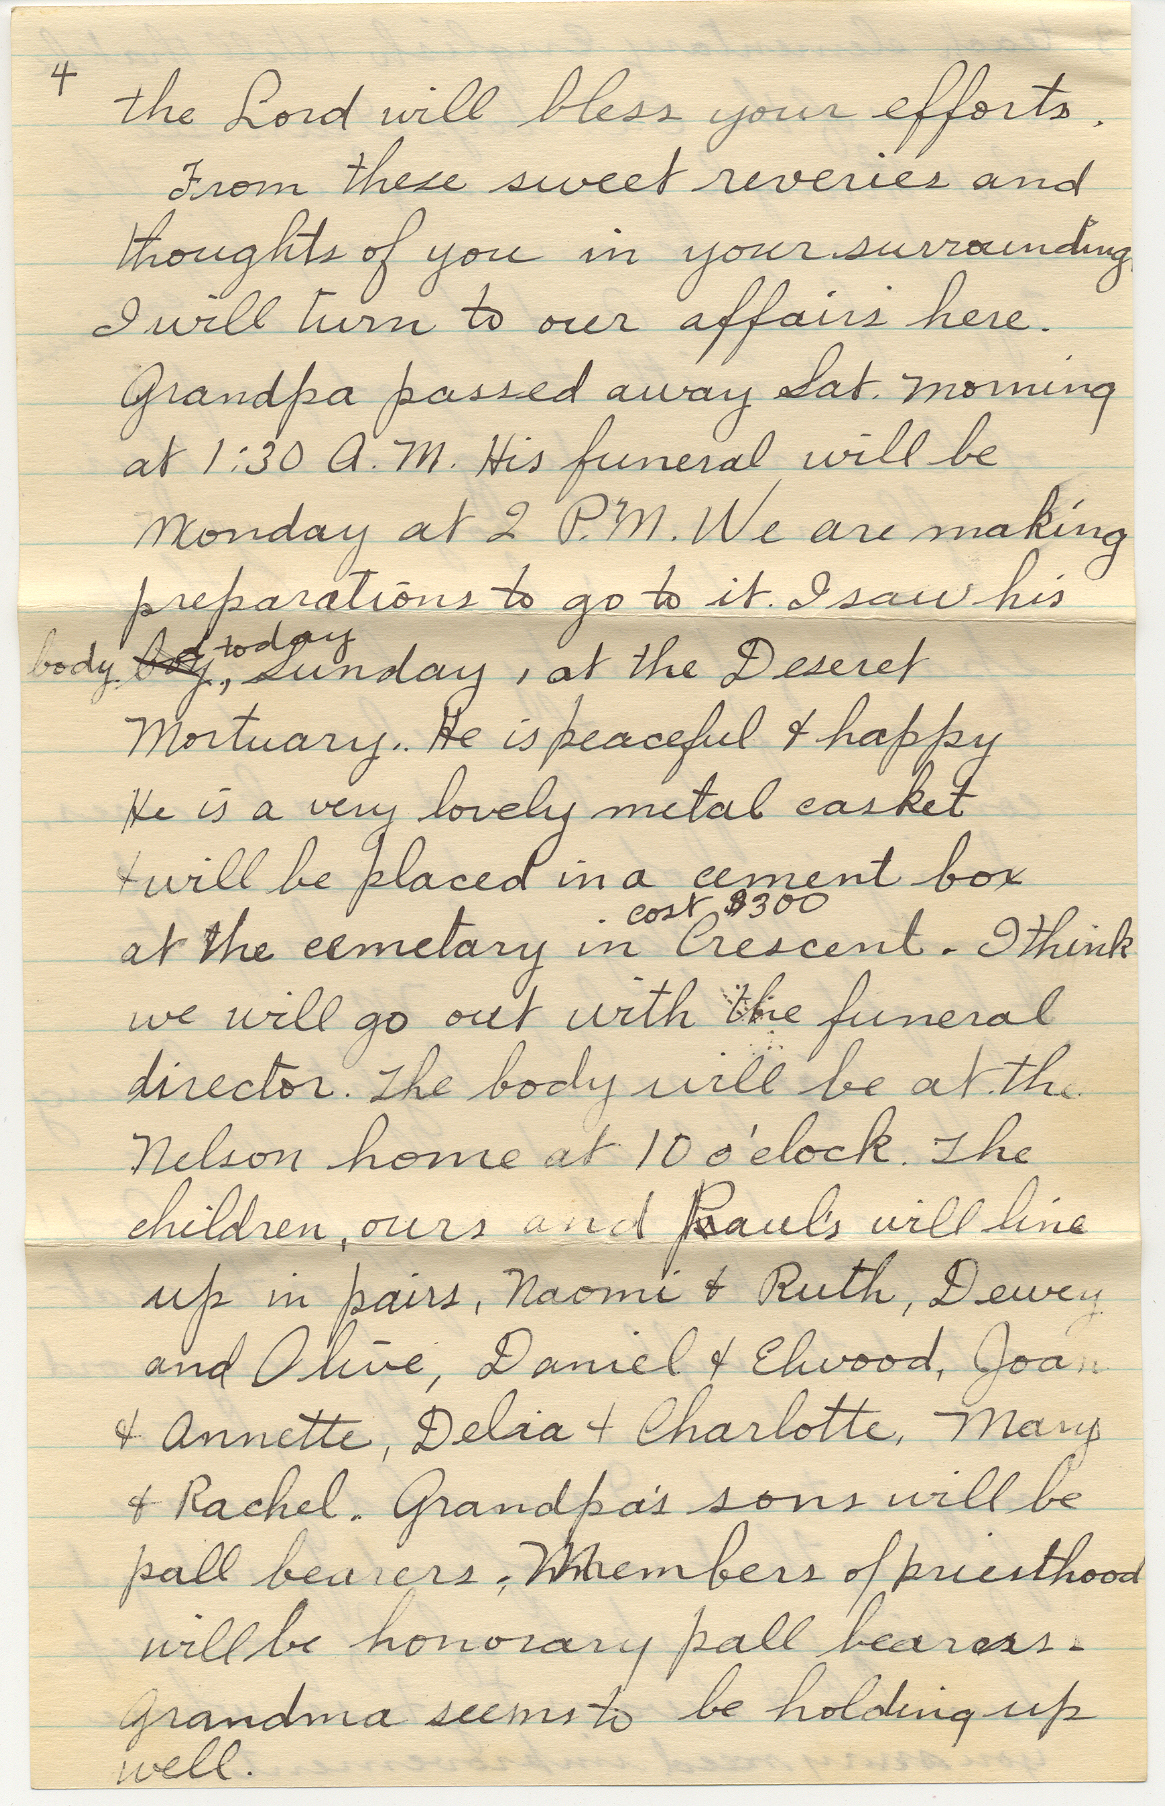 4
the Lord will bless your efforts.
From these sweet reveries and
thoughts of you in your surrounding
I will turn to our affairs here.
Grandpa passed away Sat. morning
at 1:30 A.M. His funeral will be
Monday at 2 P.M. We are making
preparations to go to it. I saw his
today
body boy, Sunday, at the Deseret
Mortuary.. He is peaceful & happy
He is a very lovely metal casket
& will be placed in a cement box
cost $300
at the cemetary in Crescent. I think
we will go out with the funeral
director. The body will be at the
Nelson home at 10 o'clock. The
children, ours and Paul's will line
up in pairs, Naomi & Ruth, Dewey
and Olive, Daniel & Elwood, Joan
& Annette, Delia & Charlotte, Mary
& Rachel. Grandpa's sons will be
pall bearers; Members of priesthood
will be honorary pall bearers.
Grandma seems to be holding up
well.